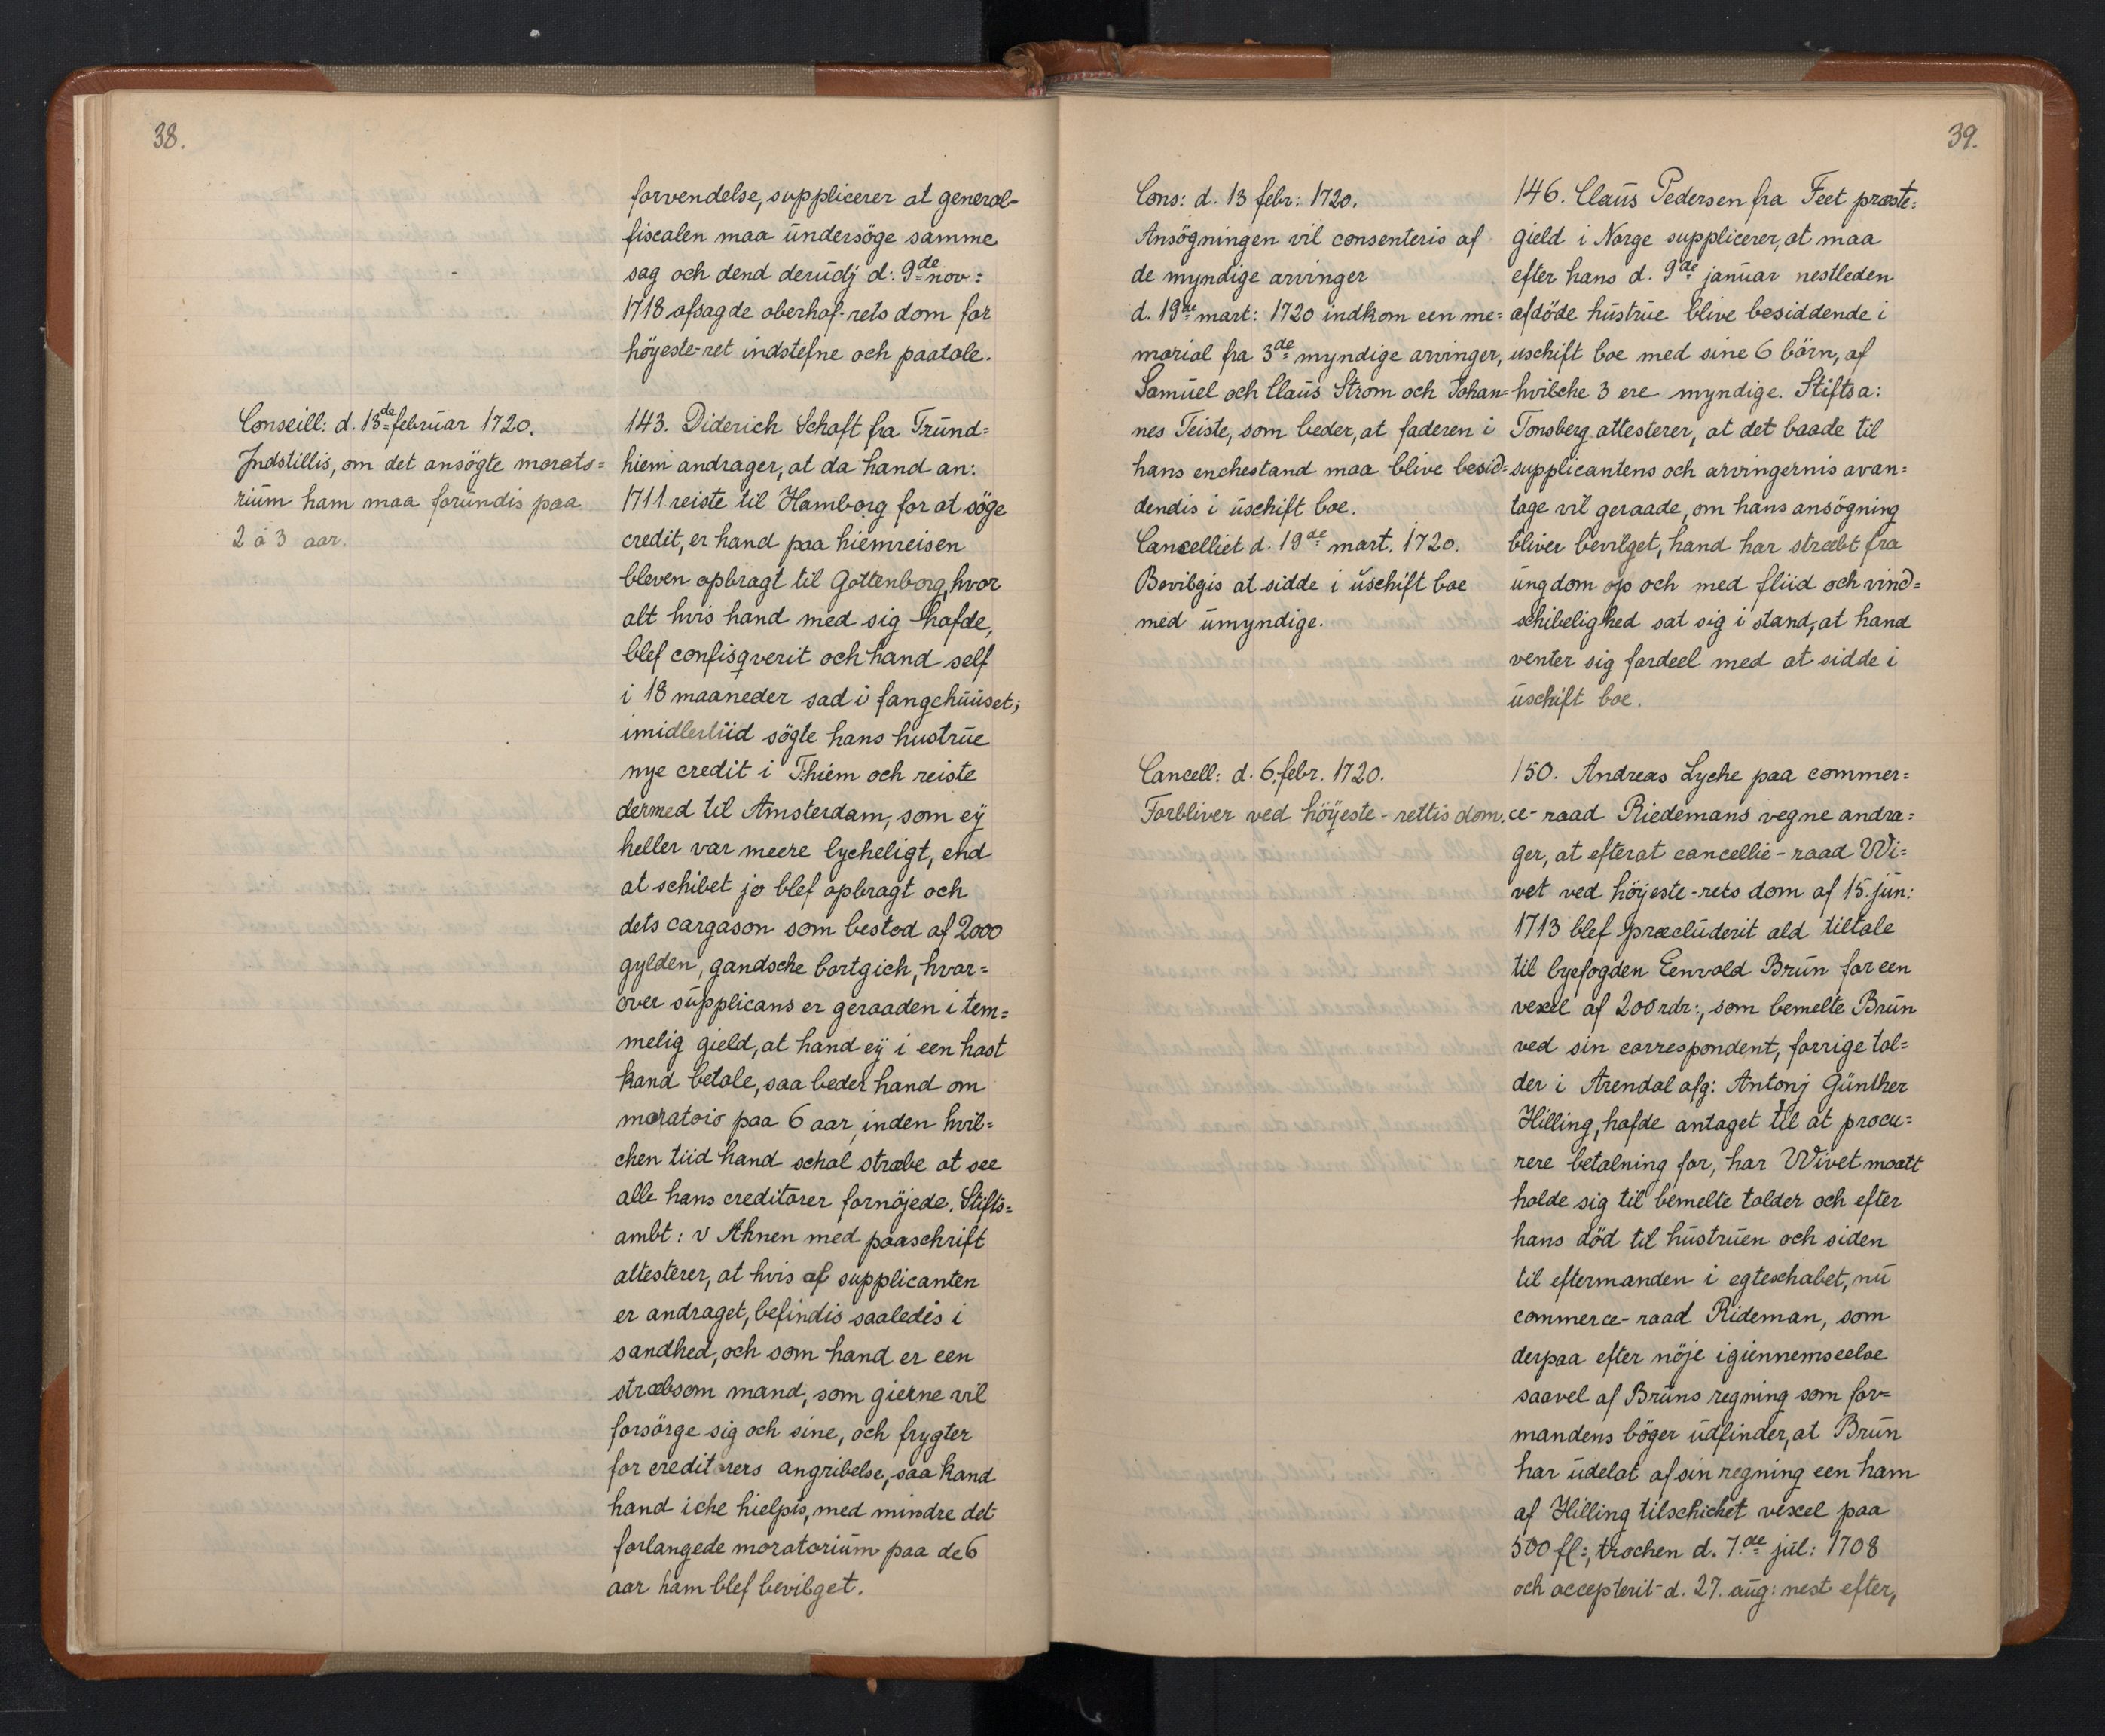 38.
forvendelse, supplicerer at general-
fiscalen maa ündersöge samme
sag och dend derüdj d: 9de nov:
1718 afsagde oberhof-rets dom for
höyeste-ret indstefne och paatale.
Conseill: d. 13de februar 1720.
Indstillis, om det ansögte morato=
rium ham maa foründis paa
2 à 3 aar.
143. Diderich Schaft fra Tründ=
hiem andrager, at da hand an:
1711 reiste til Hamborg for at söge
credit, er hand paa hiemreisen
bleven opbragt til Gottenborg, hvor
alt hvis hand med sig hafde,
blef confisqverit och hand self
i 18 maaneder sad i fangehüüset;
imidlertiid sögte hans hustrüe
nye credit i Thiem och reiste
dermed til Amsterdam, som eÿ
heller var meere lycheligt, end
at schibet jo blef opbragt och
dets cargason som bestod af 2000
gylden, gandsche bortgich, hvor=
over süpplicans er geraaden i tem=
melig gield, at hand eÿ i een hast
kand betale, saa beder hand om
moratoio paa 6 aar, inden hvil=
chen tiid hand schal stræbe at see
alle hans creditorer fornöjede. Stifts=
ambt: v Ahnen med paaschrift
attesterer, at hvis af supplicanten
er andraget, befindis saaledes i
sandhed, och som hand er een
stræbsom mand, som gierne vil
forsörge sig och sine, och frygter
for creditorers angribelse, saa kand
hand iche hielpis, med mindre det
forlangede moratorium paa de 6
aar ham blef bevilget.
39.
Cons: d. 13 febr: 1720.
Ansögningen vil consenteris af
de myndige arvinger
d. 19de mart: 1720 indkom een me=
morial fra 3de myndige arvinger,
Samüel och Claüs Strom och Johan=
nes Teiste, som beder, at faderen i
hans enchestand maa blive besid=
dendis i üschift boe.
Cancelliet d. 19de mart. 1720.
Bevilgis at sidde i üschift boe
med ümyndige.
146. Claüs Pedersen fra Feet præste:
gield i Norge supplicerer, at maa
efter hans d. 9de januar nestleden
afdöde hüstrüe blive besiddende i
uschift boe med sine 6 börn, af
hvilche 3 ere myndige. Stiftsa:
Tonsberg attesterer, at det baade til
supplicantens och arvingernis avan=
tage vil geraade, om hans ansögning
bliver bevilget, hand har stræbt fra
üngdom op och med fliid och vind=
schibelighed sat sig i stand, at hand
venter sig fordeel med at sidde i
üschift boe.
Cancell: d. 6. febr. 1720.
Forbliver ved höÿeste-rettis dom.
150. Andreas Lyche paa commer=
ce-raad Riedemans vegne andra=
ger, at efterat cancellie-raad Wi=
vet ved höÿeste-rets dom af 15. jün:
1713 blef præclüderit ald tiltale
til byefogden Eenvold Brün for een
vexel af 200 rdr:, som bemelte Brün
ved sin correspondent, forrige tol=
der i Arendal afg: Antonj Günther
Hilling, hafde antaget til at procu=
rere betalning for, har Wivet maatt
holde sig til bemelte tolder och efter
hans död til hüstrüen och siden
til eftermanden i egteschabet, nü
commerce-raad Rideman, som
derpaa efter nöje igiennemseelse
saavel af Brüns regning som for=
mandens böger üdfinder, at Brün
har üdelat af sin regning een ham
af Hilling tilschichet vexel paa
500 fl:, trochen d. 7de jül: 1708
och accepterit d. 27. aüg: nest efter,